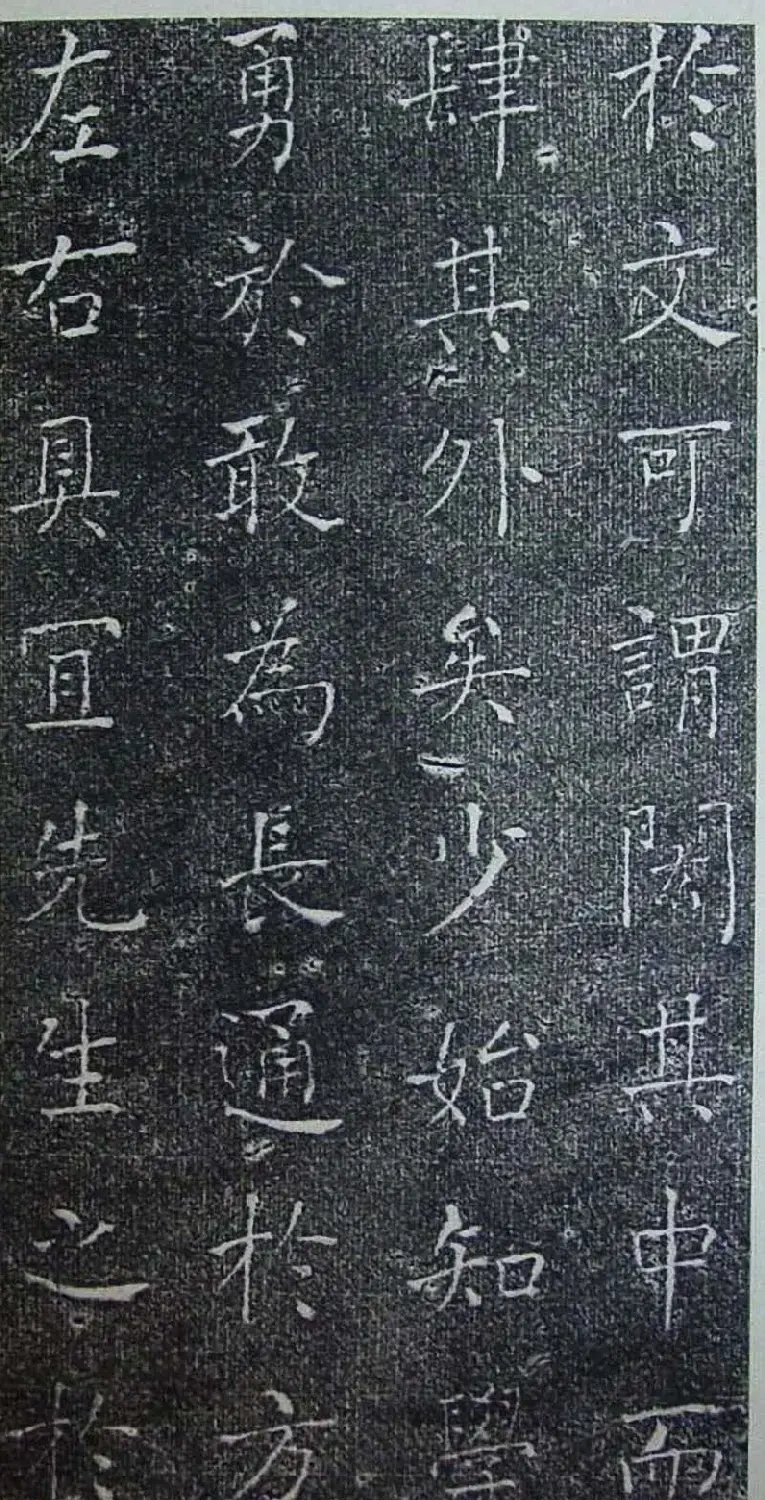 於文可謂閎其中而
肆其外矣少始知學
勇於敢為長通於方
左右具宜先生之於